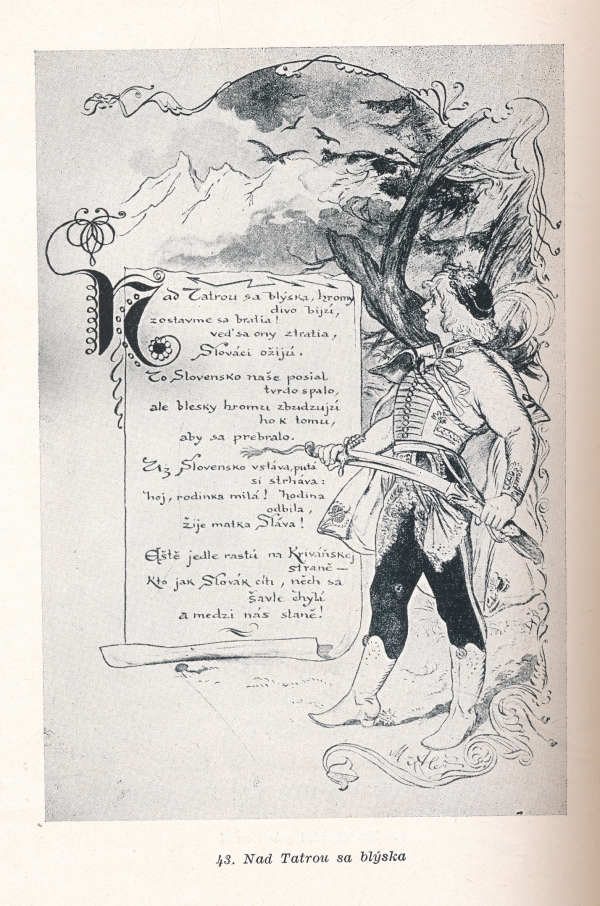 Nad Tatrou sa blýska, hromy
divo bijú,
zostavme sa bratia!
veď sa ony ztratia,
Slováci ožijú.
To Slovensko naše posial
tvrdo spalo,
ale blesky hromu zbudzujú
ho k tomu,
aby sa prebralo.
Už Slovensko vstáva, putá
si strháva:
hoj, rodinka milá! hodina
odbila,
žije matka Sláva!
Eště jedle rastú na Kriváňskej
straně —
Kto jak Slovák cíti, něch sa
šavle chytá
a medzi nás staně!
43. Nad Tatrou sa blýska